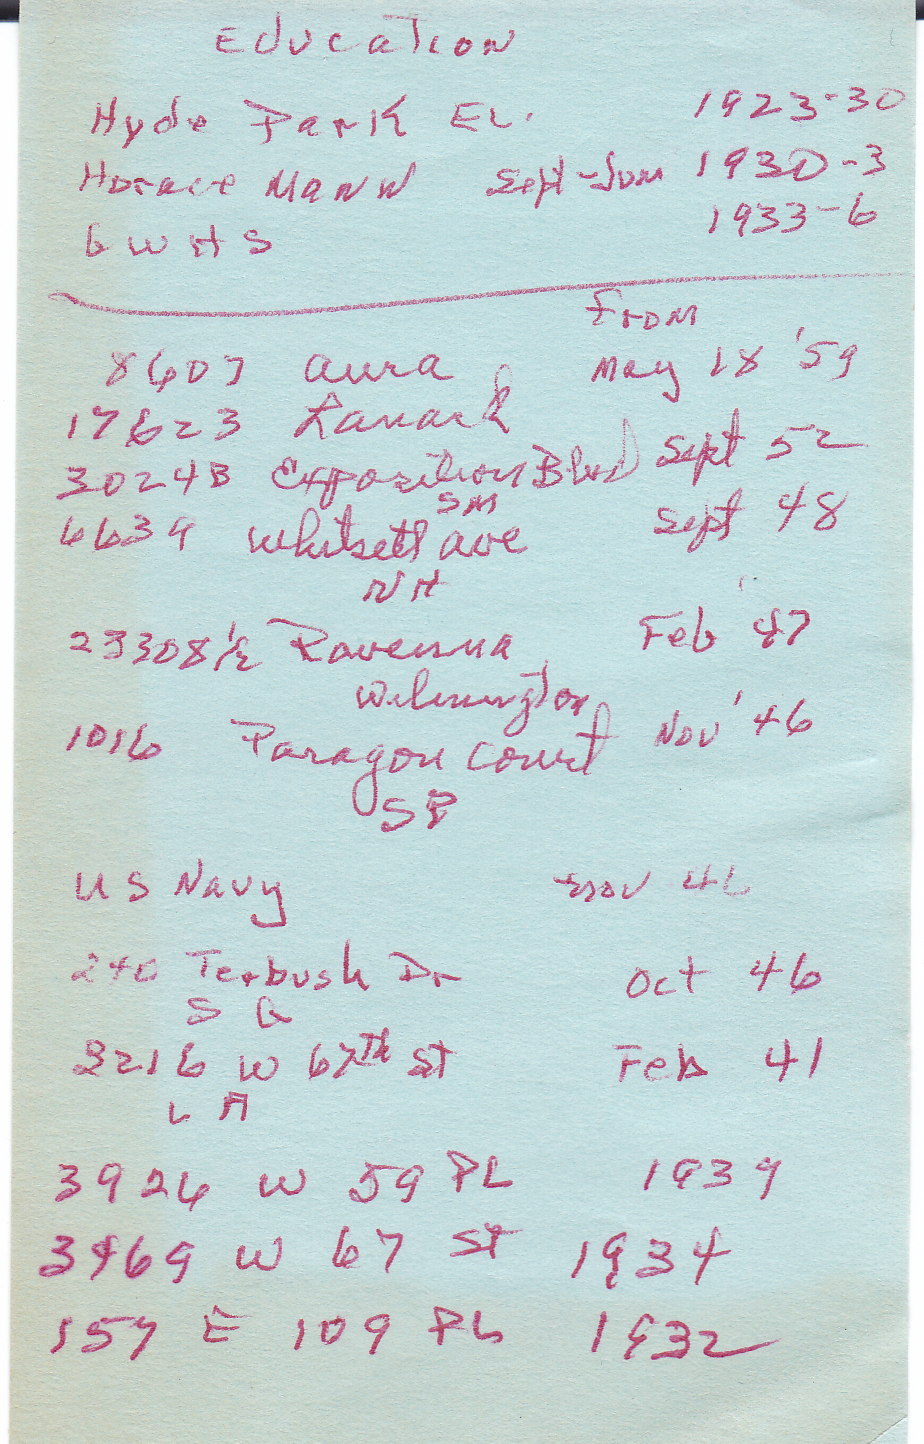 Education
Hyde Park EL. 1923-30
Horace Mann Sept-Jun 1930-3
GWHS 1933-6
From
8607 Aura May 18 '59
17623 Lanark
3024B Exposition Blvd Sept 52
SM
6639 Whitsett ave Sept 48
NH
23308 1/2 Ravenna Feb 47
Wilmington
1016 Paragon Court Nov '46
SP
US Navy Nov
240 Terbush Dr Oct 46
S G
3216 W 67th St Feb 41
LA
3926 W 59 PL 1939
3469 W 67 St 1934
157 E 109 PL 1932